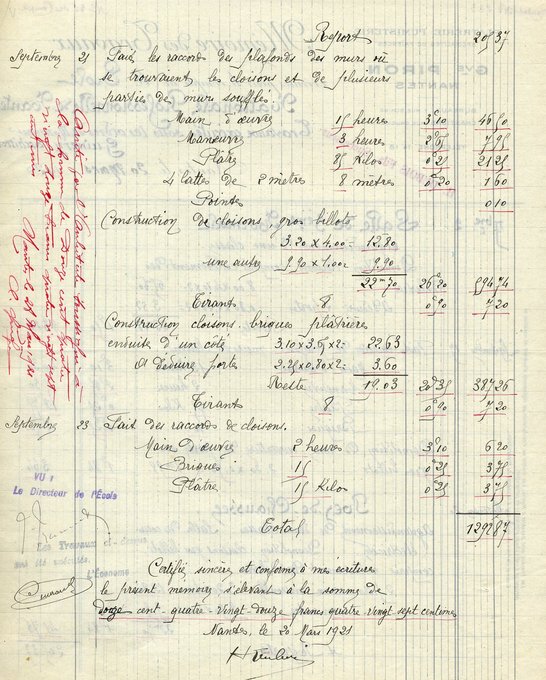 Report 205 37
Septembre 21 Fait les raccords des plafonds des murs où
se trouvaient les cloisons et de plusieurs
parties de murs soufflés
Main d'œuvre 15 heures 3,10 46 50
Manœuvre 3 heures 2,65 7 95
Plâtre 85 Kilos 0,25 21 25
4 lattes de 2 mètres 8 mètres 0,20 1 60
Pointes 0 10
Construction de cloisons gros billots
3.20 x 4.00 = 12.80
une autre 9.90 x 1.00 = 9.90
22m 70 26,20 594 74
Tirants 8 0,90 7 20
Construction cloisons briques plâtrières
enduite d'un côté 3.10 x 3.65 x 2 = 22.63
à déduire portes 2.25 x 0.80 x 2 = 3.60
Reste 19.03 20,35 387 26
Tirants 8 0,90 7 20
Septembre 23 Fait des raccords de cloisons.
Main d'œuvre 2 heures 3,10 6 20
Briques 15 0,25 3 75
Plâtre 15 Kilos 0,25 3 75
Total 1292 87
Certifié sincère et conforme à mes écritures
le présent mémoire s'élevant à la somme de
douze-cent-quatre-vingt douze francs quatre-vingt sept centimes
Nantes, le 20 Mars 1921
VU :
Le Directeur de l'École
Les Travaux ci-dessus
ont été exécutés.
L'Économe